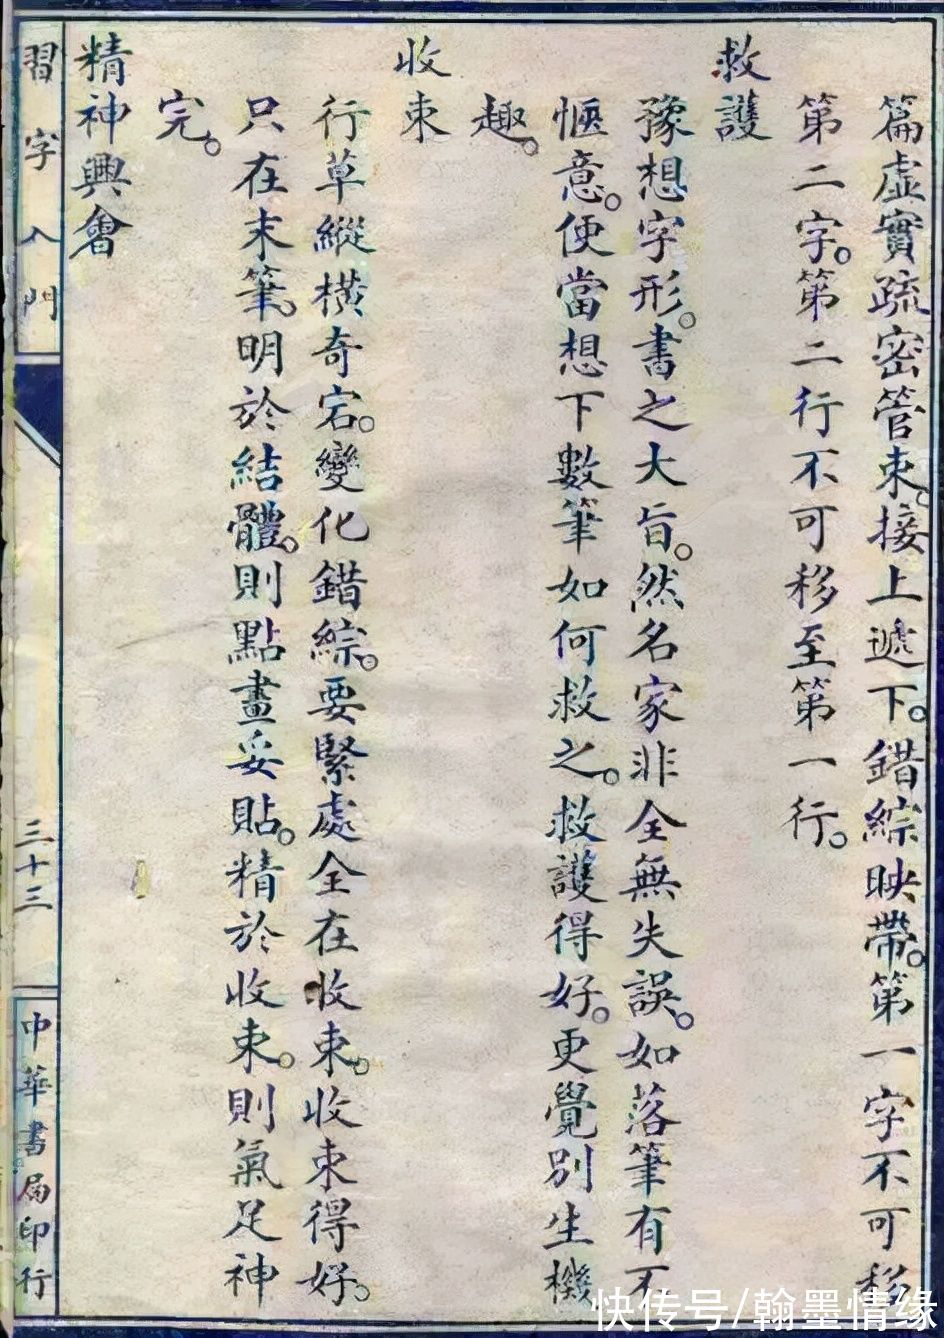 篇虛實疏密管束。接上遞下。錯綜映帶。第一字不可移
第二字。第二行不可移至第一行。
救護
豫想字形。書之大旨。然名家非全無失誤。如落筆有不
愜意。便當想下數筆如何救之。救護得好。更覺別生機
趣。
收束
行草縱橫奇宕。變化錯綜。要緊處全在收束。收束得好。
只在末筆。明於結體。則點畫妥貼。精於收束。則氣足神
完。
精神興會
習字入門
三十三
中華書局印行
快传号/翰墨情缘